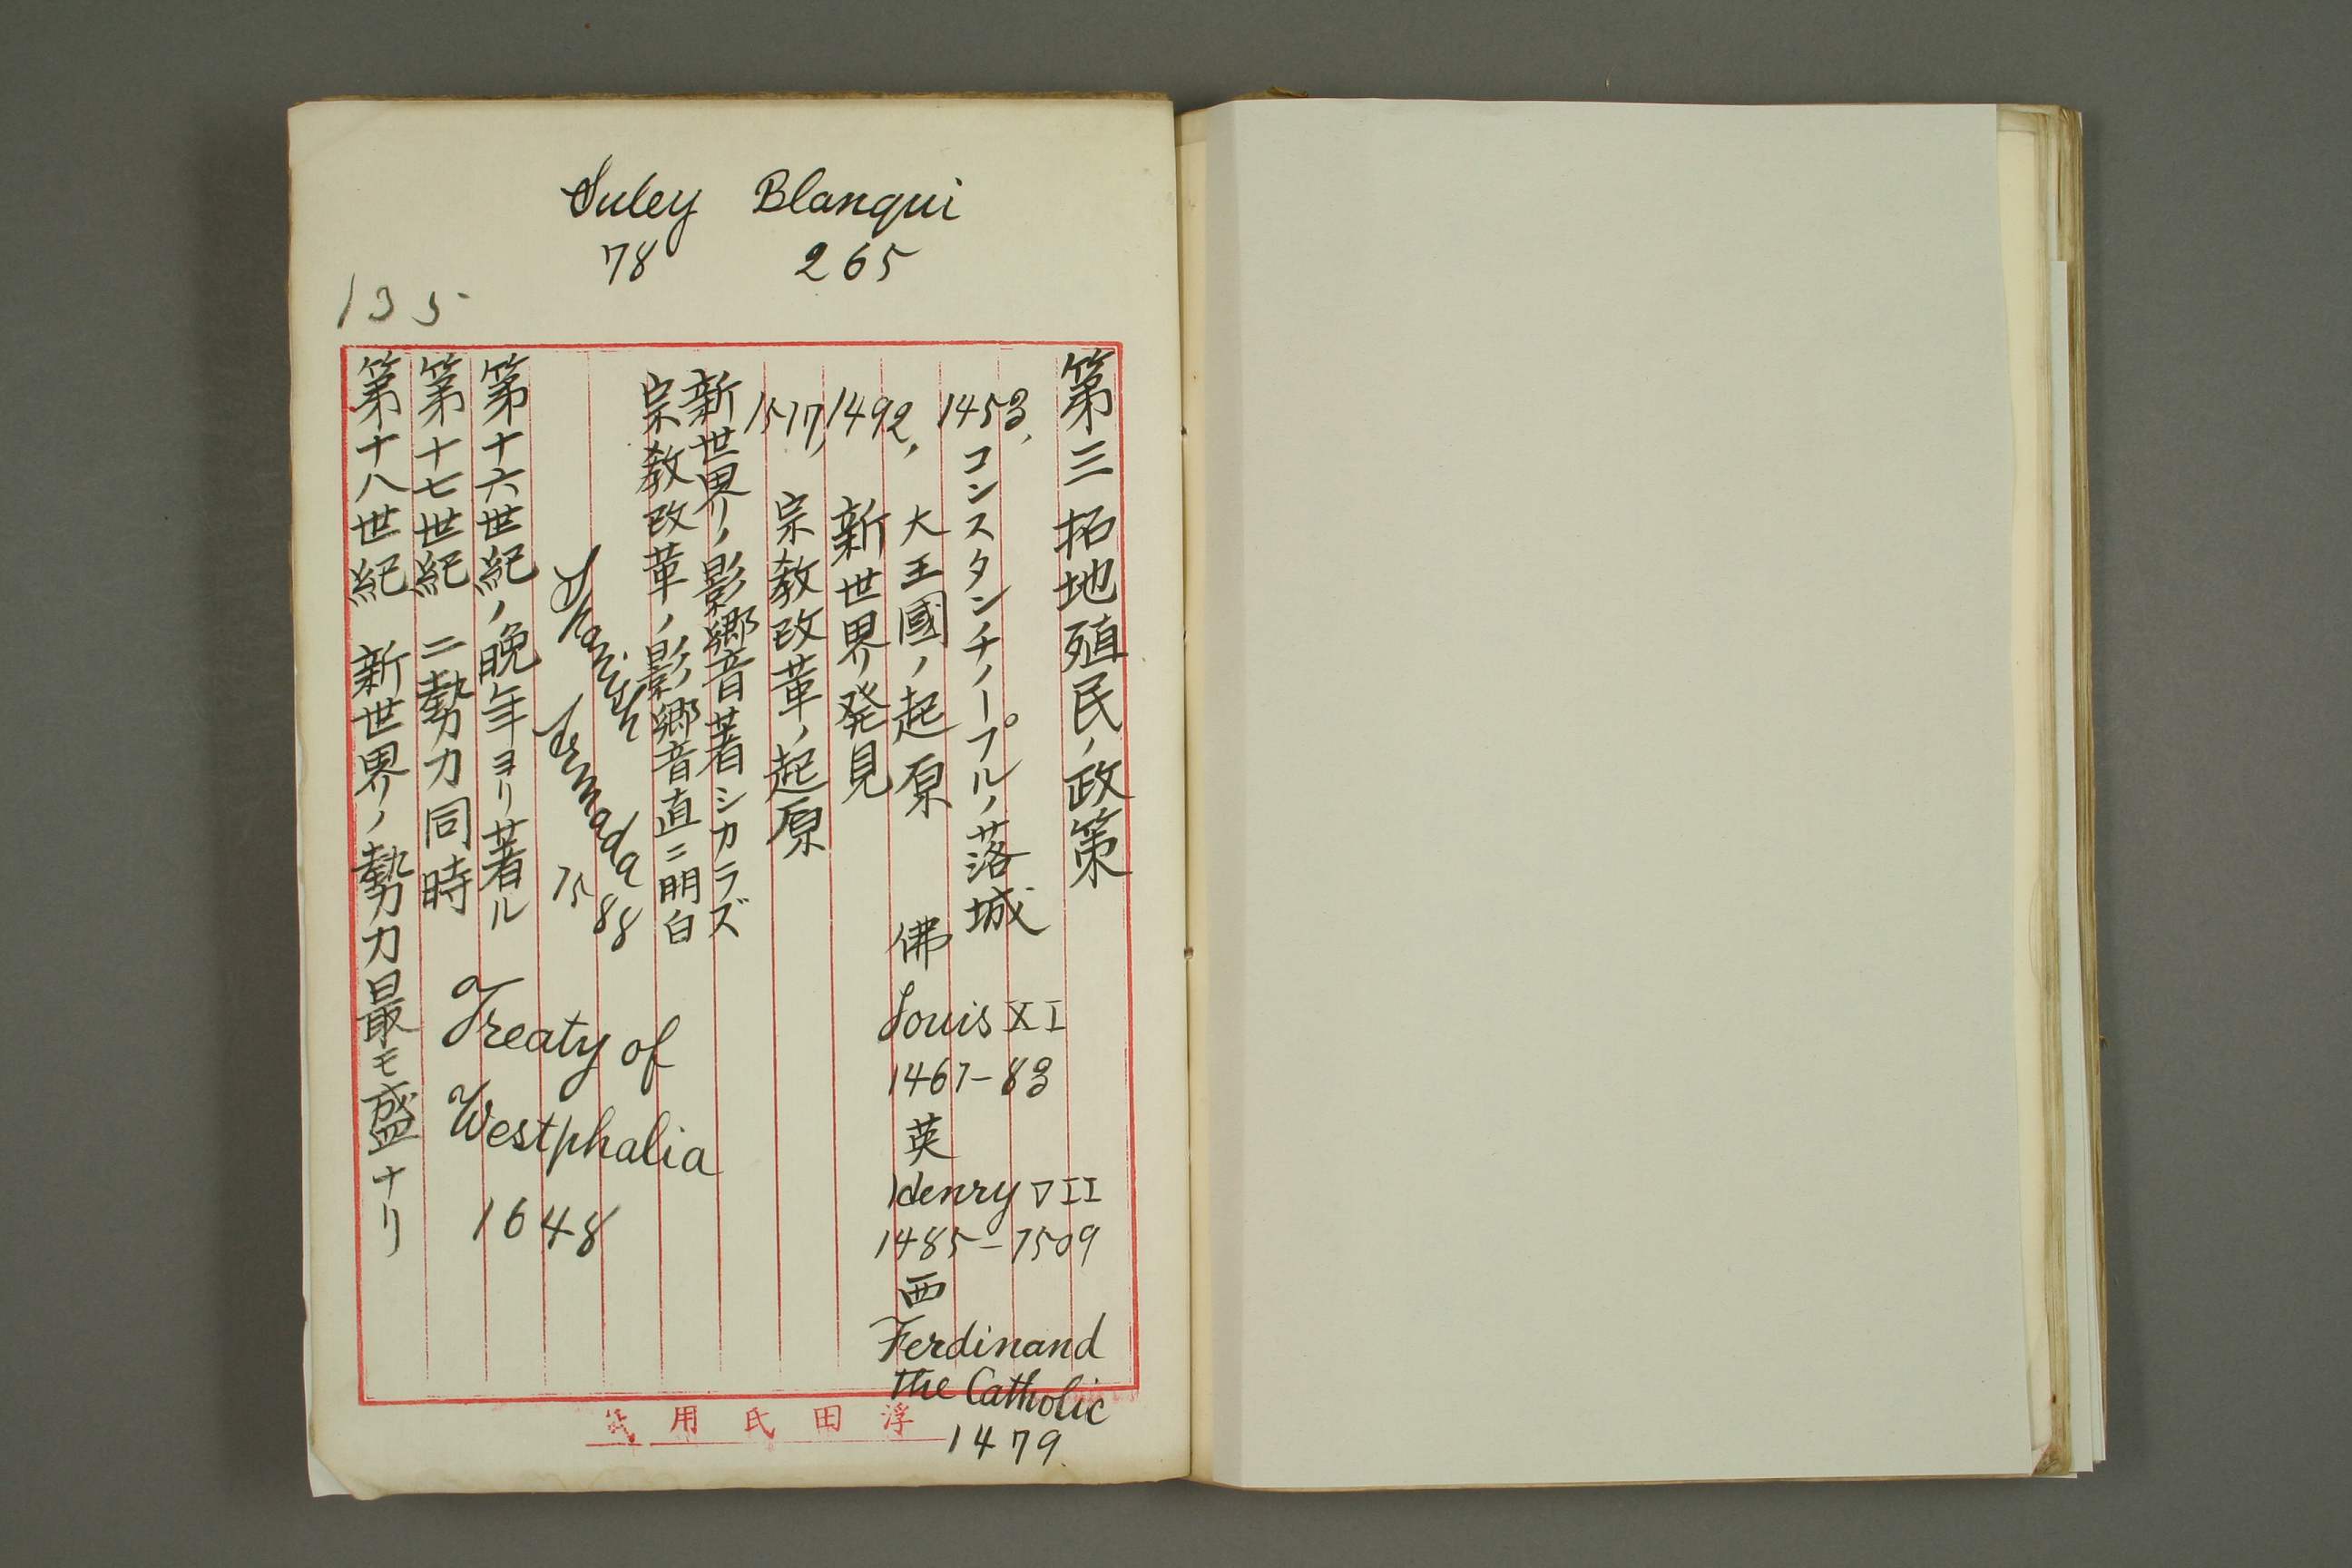 Suley Blanqui
78 265
135
第三 拓地殖民ノ政策
1453, コンスタンチノープルノ落城
大王國ノ起原
佛
Louis XI
1467-83
英
Henry VII
1485-1509
西
Ferdinand
the Catholic
1479.
1492, 新世界ノ発見
1517, 宗教改革ノ起原
新世界ノ影響著シカラズ
宗教改革ノ影響直ニ明白
Spanish Armada
1588
第十六世紀ノ晩年ヨリ著ル
第十七世紀 二勢力同時
Treaty of
Westphalia
1648
第十八世紀 新世界ノ勢力最モ盛ナリ
浮田氏用